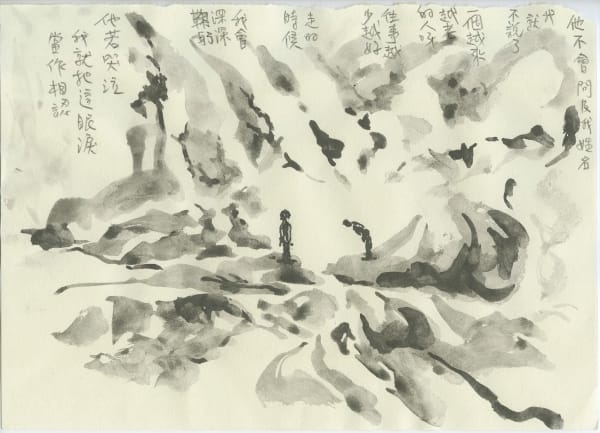 他不會問及我姓名
我就
不說了
一個越來
越老
的人
往事越
少越好
走的
時候
我會
深深
鞠躬
他若哭泣
我就把這眼淚
當作相認